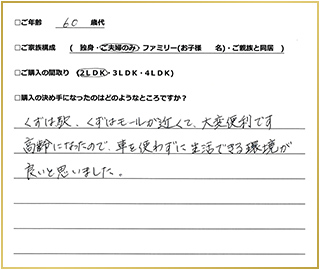 □ご年齢 60 歳代
□ご家族構成 ( 独身・ご夫婦のみ)ファミリー(お子様 名)・ご親族と同居 )
□ご購入の間取り (2LDK・3LDK・4LDK)
□購入の決め手になったのはどのようなところですか？
くずは駅、くずはモールが近くて、大変便利です
高齢になたので、車を使わずに生活できる環境が
良いと思いました。